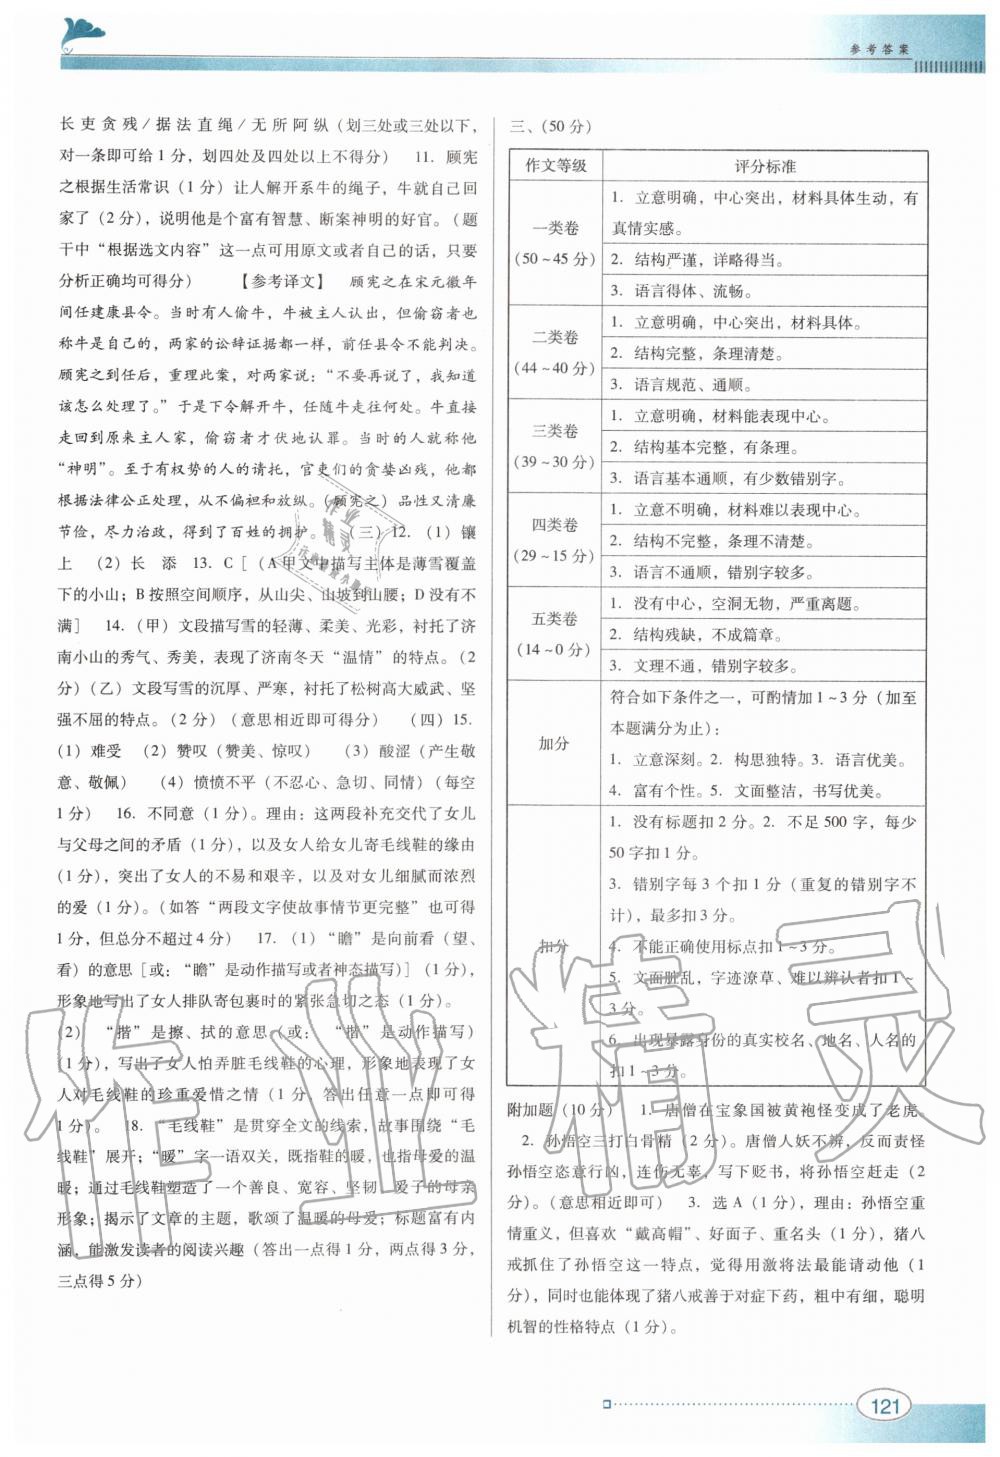 参考答案
长吏贪残/据法直绳/无所阿纵(划三处或三处以下,
对一条即可给1分，划四处及四处以上不得分) 11. 顾宪
之根据生活常识(1分)让人解开系牛的绳子，牛就自己回
家了(2分)，说明他是个富有智慧、断案神明的好官。(题
干中“根据选文内容”这一点可用原文或者自己的话，只要
分析正确均可得分) 【参考译文】 顾宪之在宋元徽年
间任建康县令。当时有人偷牛，牛被主人认出，但偷窃者也
称牛是自己的，两家的讼辞证据都一样，前任县令不能判决。
顾宪之到任后，重理此案，对两家说：“不要再说了，我知道
该怎么处理了。”于是下令解开牛，任随牛走往何处。牛直接
走回到原来主人家，偷窃者才伏地认罪。当时的人就称他
“神明”。至于有权势的人的请托，官吏们的贪婪凶残，他都
根据法律公正处理，从不偏袒和放纵。(顾宪之)品性又清廉
节俭，尽力治政，得到了百姓的拥护。 (三) 12. (1) 镶
上 (2) 长 添 13. C [(A 甲文中描写主体是薄雪覆盖
下的小山；B 按照空间顺序，从山尖、山坡到山腰；D 没有不
满] 14. (甲) 文段描写雪的轻薄、柔美、光彩，衬托了济
南小山的秀气、秀美，表现了济南冬天“温情”的特点。(2
分) (乙) 文段写雪的沉厚、严寒，衬托了松树高大威武、坚
强不屈的特点。(2分) (意思相近即可得分) (四) 15.
(1) 难受 (2) 赞叹 (赞美、惊叹) (3) 酸涩 (产生敬
意、敬佩) (4) 愤愤不平 (不忍心、急切、同情) (每空
1分) 16. 不同意 (1分)。理由：这两段补充交代了女儿
与父母之间的矛盾 (1分)，以及女人给女儿寄毛线鞋的缘由
(1分)，突出了女人的不易和艰辛，以及对女儿细腻而浓烈
的爱 (1分)。(如答“两段文字使故事情节更完整”也可得
1分，但总分不超过4分) 17. (1) “瞻”是向前看 (望、
看) 的意思 [或：“瞻”是动作描写或者神态描写)] (1分),
形象地写出了女人排队寄包裹时的紧张急切之态 (1分)。
(2) “揩”是擦、拭的意思 (或：“揩”是动作描写)
(1分)，写出了女人怕弄脏毛线鞋的心理，形象地表现了女
人对毛线鞋的珍重爱惜之情 (1分，答出任意一点即可得
1分)。 18. “毛线鞋”是贯穿全文的线索，故事围绕“毛
线鞋’展开；“暖”字一语双关，既指毛线鞋的暖，也指母爱的温
暖；通过毛线鞋塑造了一个善良、宽容、坚韧、爱子的母亲
形象；揭示了文章的主题，歌颂了温暖的母爱；标题富有内
涵，能激发读者的阅读兴趣 (答出一点得1分，两点得3分,
三点得5分)
三、(50分)
作文等级 评分标准
一类卷
(50～45分)
1. 立意明确，中心突出，材料具体生动，有
真情实感。
2. 结构严谨，详略得当。
3. 语言得体、流畅。
二类卷
(44～40分)
1. 立意明确，中心突出，材料具体。
2. 结构完整，条理清楚。
3. 语言规范、通顺。
三类卷
(39～30分)
1. 立意明确，材料能表现中心。
2. 结构基本完整，有条理。
3. 语言基本通顺，有少数错别字。
四类卷
(29～15分)
1. 立意不明确，材料难以表现中心。
2. 结构不完整，条理不清楚。
3. 语言不通顺，错别字较多。
五类卷
(14～0分)
1. 没有中心，空洞无物，严重离题。
2. 结构残缺，不成篇章。
3. 文理不通，错别字较多。
加分
符合如下条件之一，可酌情加1～3分 (加至
本题满分为止)：
1. 立意深刻。2. 构思独特。3. 语言优美。
4. 富有个性。5. 文面整洁，书写优美。
扣分
1. 没有标题扣2分。2. 不足500字，每少
50字扣1分。
3. 错别字每3个扣1分 (重复的错别字不
计)，最多扣3分。
4. 不能正确使用标点扣1～3分。
5. 文面脏乱，字迹潦草、难以辨认者扣1～
3分。
6. 出现暴露身份的真实校名、地名、人名的
扣1～3分。
附加题 (10分) 1. 唐僧在宝象国被黄袍怪变成了老虎
2. 孙悟空三打白骨精 (2分)。唐僧人妖不辨，反而责怪
孙悟空恣意行凶，连伤无辜，写下贬书，将孙悟空赶走 (2
分)。(意思相近即可) 3. 选A (1分)，理由：孙悟空重
情重义，但喜欢“戴高帽”、好面子、重名头 (1分)，猪八
戒抓住了孙悟空这一特点，觉得用激将法最能请动他 (1
分)，同时也能体现了猪八戒善于对症下药，粗中有细，聪明
机智的性格特点 (1分)。
121
作业精灵